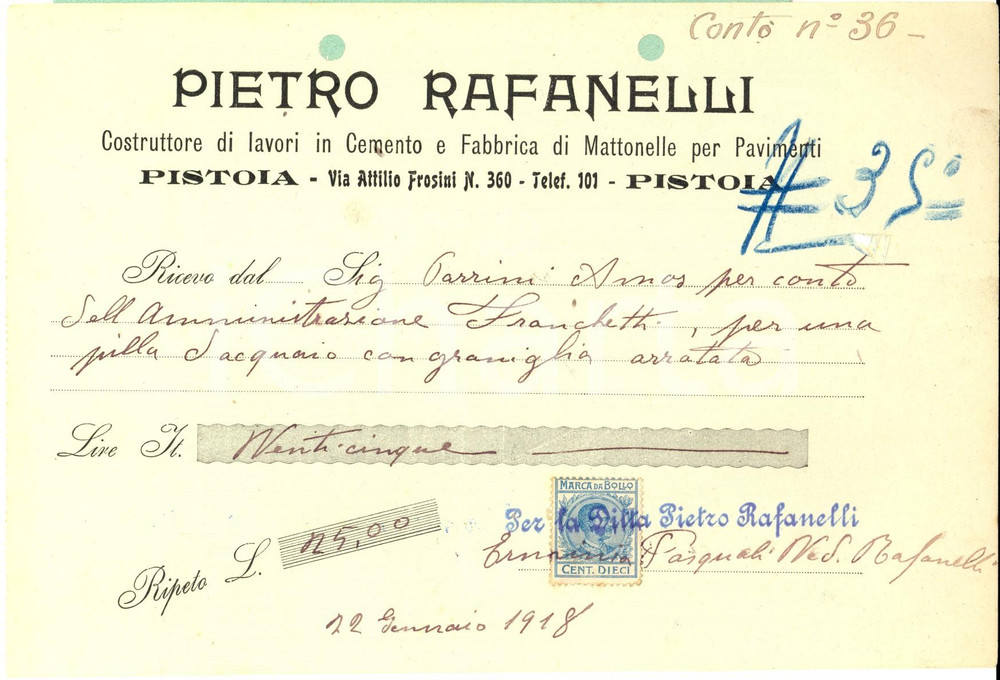 Conto nº 36 -
PIETRO RAFANELLI
Costruttore di lavori in Cemento e Fabbrica di Mattonelle per Pavimenti
PISTOIA - Via Attilio Frosini N. 360 - Telef. 101 - PISTOIA
35
Ricevo dal Sig Parrini Amos per conto
dell Amministrazione Franchetti, per una
pilla d'acquaio con graniglia arrotata
Lire It. Venticinque
MARCA DA BOLLO
CENT. DIECI
Per la Ditta Pietro Rafanelli
Pasquali Ved. Rafanelli
Ripeto L. 25,00
22 Gennaio 1918